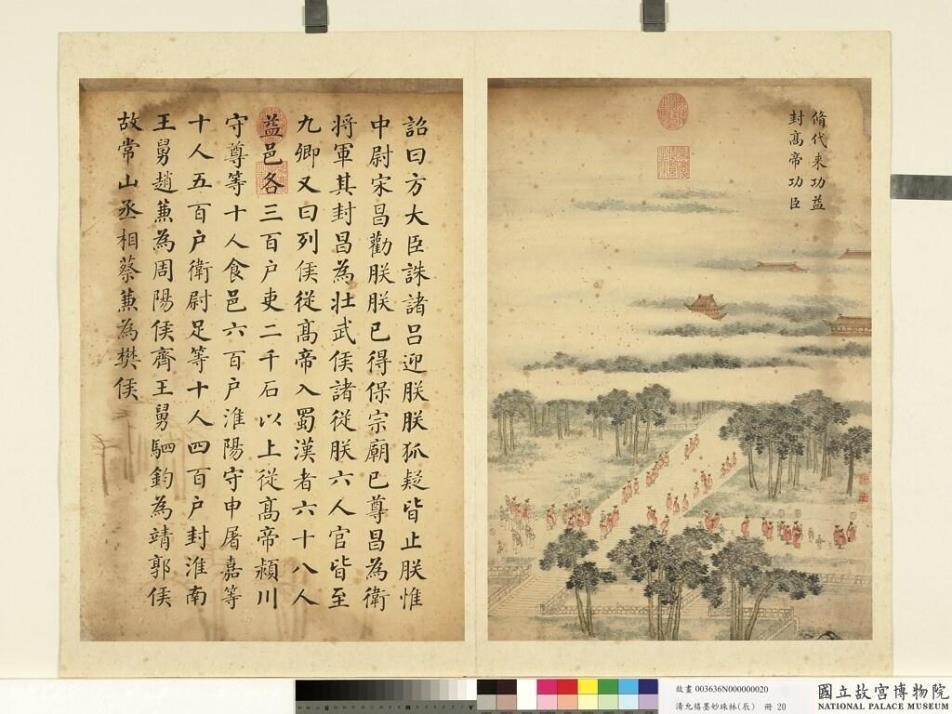 脩代来功益
封高帝功臣
詔曰方大臣誅諸呂迎朕朕狐疑皆止朕惟
中尉宋昌勸朕朕已得保宗廟已尊昌為衛
將軍其封昌為壯武侯諸從朕六人官皆至
九卿又曰列侯從高帝入蜀漢者六十八人
益邑各三百户吏二千石以上從高帝潁川
守尊等十人食邑六百户淮陽守申屠嘉等
十人五百户衛尉足等十人四百户封淮南
王舅趙蒹為周陽侯齊王舅駟鈞為靖郭侯
故常山丞相蔡蒹為樊侯
故畫 003636N000000020
清允禧墨妙珠林(辰) 冊 20
國立故宮博物院
NATIONAL PALACE MUSEUM